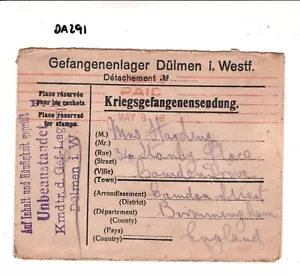 DA291
Gefangenenlager Dülmen i. Westf.
Détachement №
PAID
MAY 8
Place réservée
pour les cachets.
Place reserved
for stamps.
Kriegsgefangenensendung.
Auf Inhalt und Richtigkeit geprüft
Unbeanstandet
Kmdtr. d. Gef.-Lag.
Dülmen i. W.
(M.) Mrs Harding
(Mr.)
(Rue) Place
(Street)
(Ville) Camden Drove
(Town)
(Arrondissement) Camden Street
(District)
(Département) Birmingham
(County)
(Pays) England
(Country)